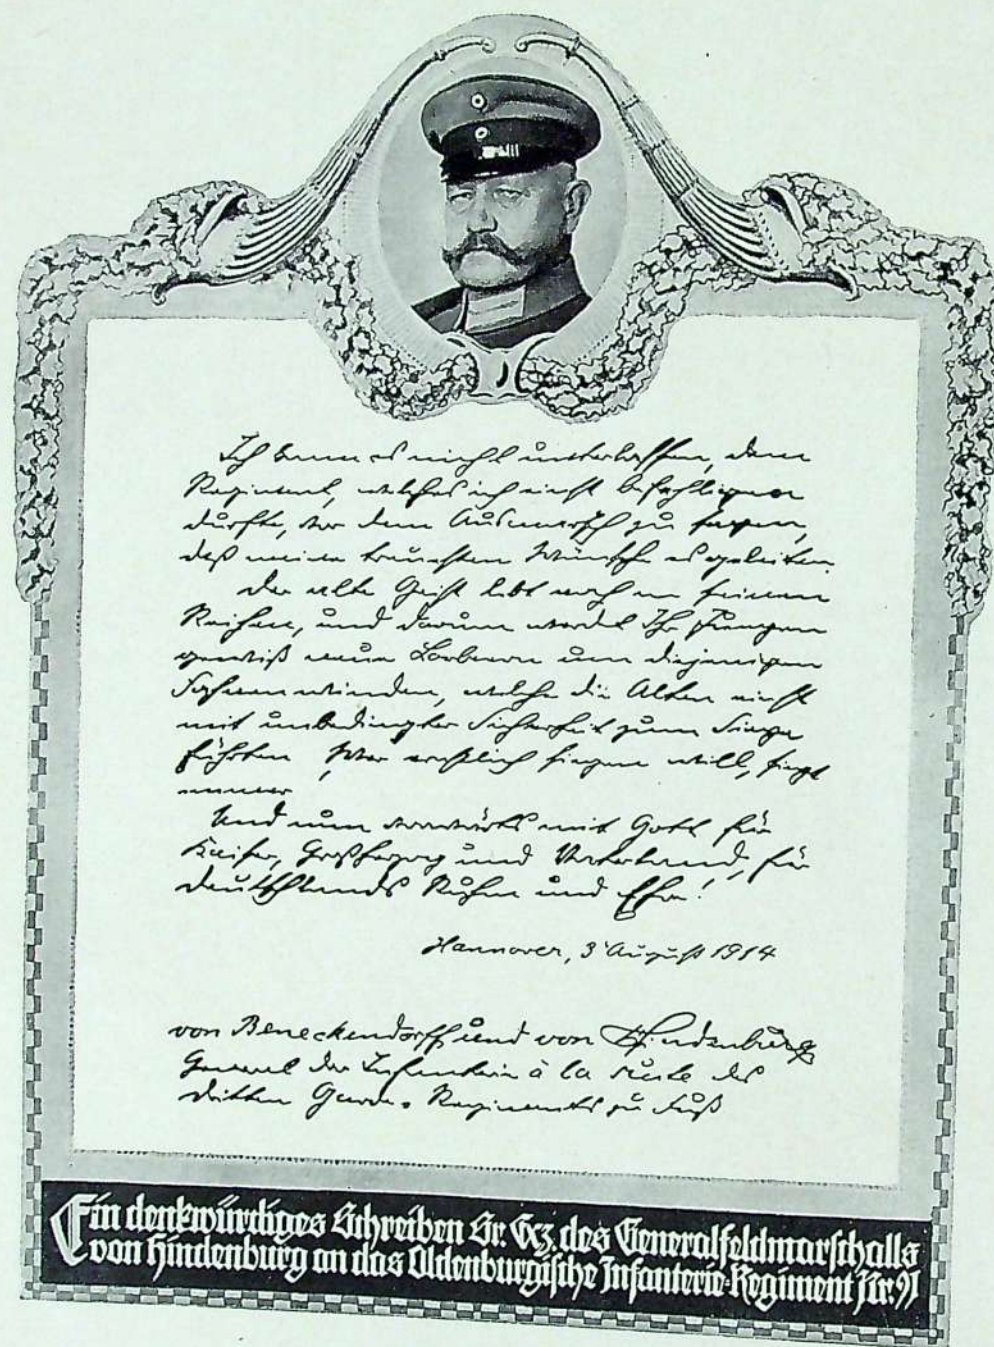 Ich kann es nicht unterlassen, dem
Regiment, welches ich einst befehligen
durfte, vor dem Ausmarsch zu sagen,
daß meine treuesten Wünsche es geleiten.
Der alte Geist lebt noch in seinen
Reihen, und darum werdet Ihr Jungen
gewiß neue Lorbeeren um diejenigen
Fahnen winden, welche die Alten einst
mit unbedingter Sicherheit zum Siege
führten. Wer ernstlich siegen will, siegt
immer.
Und nun vorwärts mit Gott für
Kaiser, Großherzog und Vaterland, für
Deutschlands Ruhm und Ehre!
Hannover, 3 August 1914
von Beneckendorff und von Hindenburg
General der Infanterie à la suite des
Dritten Garde-Regiments zu Fuß
Ein denkwürdiges Schreiben Sr. Exz. des Generalfeldmarschalls
von Hindenburg an das Oldenburgische Infanterie-Regiment Nr. 91